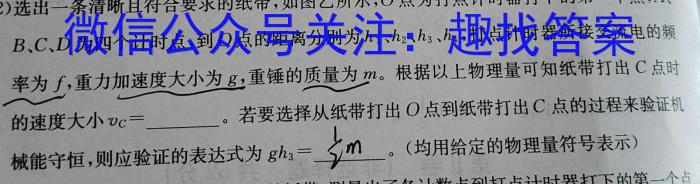 2)选出一条清晰且符合要求的纸带,如图乙所示,O点为打点计时器打下的第一个点,A、
B、C、D为四个计时点,到O点的距离分别为h₁、h₂、h₃、h₄,打点计时器所接交流电的频
微信公众号关注:趣找答案
率为f,重力加速度大小为g,重锤的质量为m。根据以上物理量可知纸带打出C点时
的速度大小vC=______。若要选择从纸带打出O点到纸带打出C点的过程来验证机
械能守恒,则应验证的表达式为gh₃= ½m 。(均用给定的物理量符号表示)
测量出了各计数点到打点计时器打下的第一个点